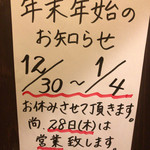 年末年始の
お知らせ
12/30～1/4
お休みさせて頂きます。
尚、28日(木)は
営業致します。